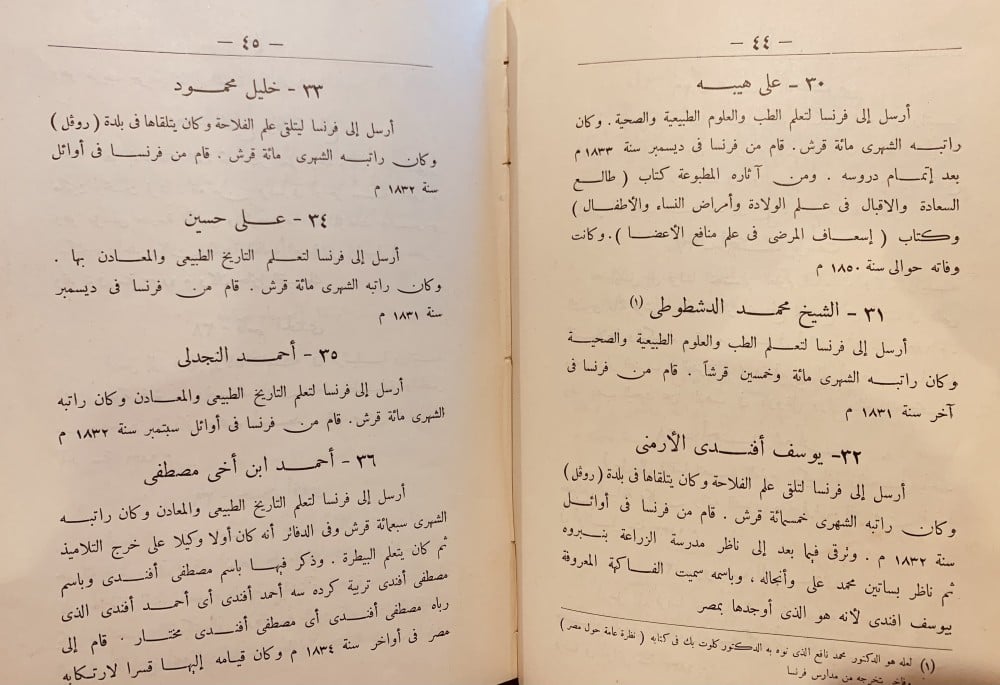 — ٤٤ —
٣٠ - على هيبه
أرسل إلى فرنسا لتعلم الطب والعلوم الطبيعية والصحية . وكان
راتبه الشهرى مائة قرش. قام من فرنسا فى ديسمبر سنة ١٨٣٣ م
بعد إتمام دروسه . ومن آثاره المطبوعة كتاب ( طالع
السعادة والاقبال فى علم الولادة وأمراض النساء والأطفال )
وكتاب ( إسعاف المرضى فى علم منافع الأعضا ) . وكانت
وفاته حوالى سنة ١٨٥٠ م
٣١ - الشيخ محمد الدشطوطى (١)
أرسل إلى فرنسا لتعلم الطب والعلوم الطبيعية والصحية
وكان راتبه الشهرى مائة وخمسين قرشاً . قام من فرنسا فى
آخر سنة ١٨٣١ م
٣٢- يوسف أفندى الأرمنى
أرسل إلى فرنسا لتلقى علم الفلاحة وكان يتلقاها فى بلدة (روڤل)
وكان راتبه الشهرى خمسمائة قرش . قام من فرنسا فى أوائل
سنة ١٨٣٢ م . وترقى فيما بعد إلى ناظر مدرسة الزراعة بنبروه
ثم ناظر بساتين محمد على وأنجاله ، وباسمه سميت الفاكهة المعروفة
بيوسف افندى لأنه هو الذى أوجدها بمصر
(١) لعله هو الدكتور محمد نافع الذى نوه به الدكتور كلوت بك فى كتابه ( نظرة عامة حول مصر )
بتخرجه من مدارس فرنسا
— ٤٥ —
٣٣ - خليل محمود
أرسل إلى فرنسا ليتلقى علم الفلاحة وكان يتلقاها فى بلدة ( روڤل )
وكان راتبه الشهرى مائة قرش . قام من فرنسا فى أوائل
سنة ١٨٣٢ م
٣٤ - على حسين
أرسل إلى فرنسا لتعلم التاريخ الطبيعى والمعادن بها .
وكان راتبه الشهرى مائة قرش . قام من فرنسا فى ديسمبر
سنة ١٨٣١ م
٣٥ - أحمد النجدلى
أرسل إلى فرنسا لتعلم التاريخ الطبيعى والمعادن وكان راتبه
الشهرى مائة قرش. قام من فرنسا فى أوائل سبتمبر سنة ١٨٣٢ م
٣٦ - أحمد ابن أخى مصطفى
أرسل إلى فرنسا لتعلم التاريخ الطبيعى والمعادن وكان راتبه
الشهرى سبعمائة قرش وفى الدفاتر أنه كان أولا وكيلا على خرج التلاميذ
ثم كان يتعلم البيطرة . وذكر فيها باسم مصطفى أفندى وباسم
مصطفى أفندى تربية كرده سه أحمد أفندى أى أحمد أفندى الذى
رباه مصطفى أفندى أى مصطفى أفندى مختار . قام إلى
مصر فى أواخر سنة ١٨٣٤ م وكان قيامه إليها قسرا لارتكابه